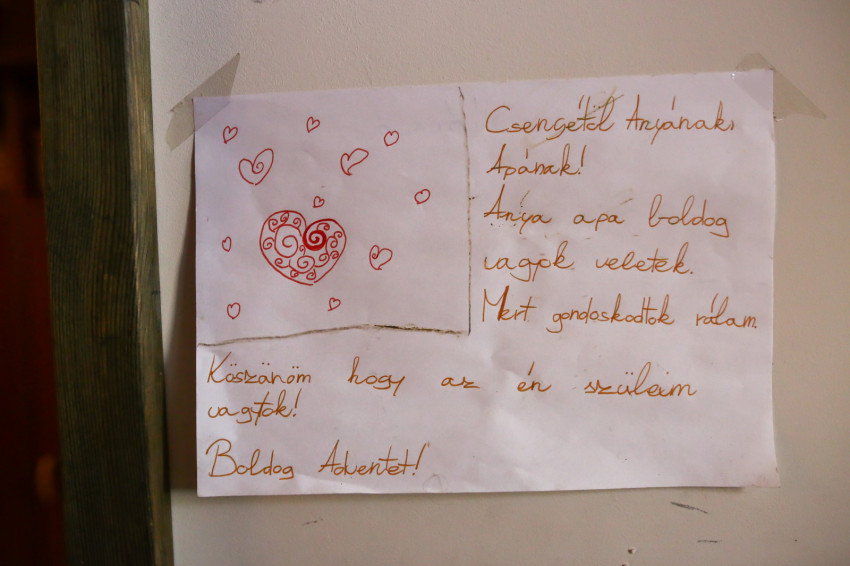 Csengétől Anyának,
Apának!
Anya apa boldog
vagyok veletek.
Mert gondoskodtok rólam.
Köszönöm hogy az én szüleim
vagytok!
Boldog Adventet!